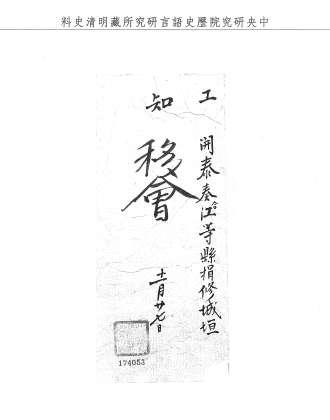 中央研究院歷史語言研究所藏明清史料
工
開泰奏江等縣捐修城垣
知
移會
十一月廿七日
174053